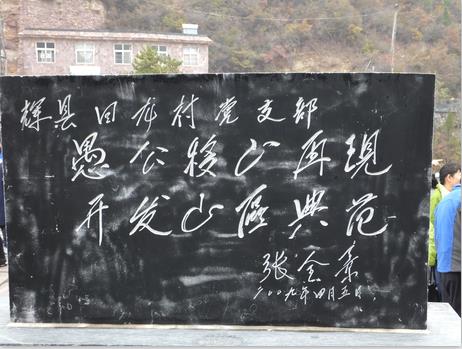 辉县回龙村党支部
愚公移山再現
开发山區典范
张全景
二〇〇九年四月五日